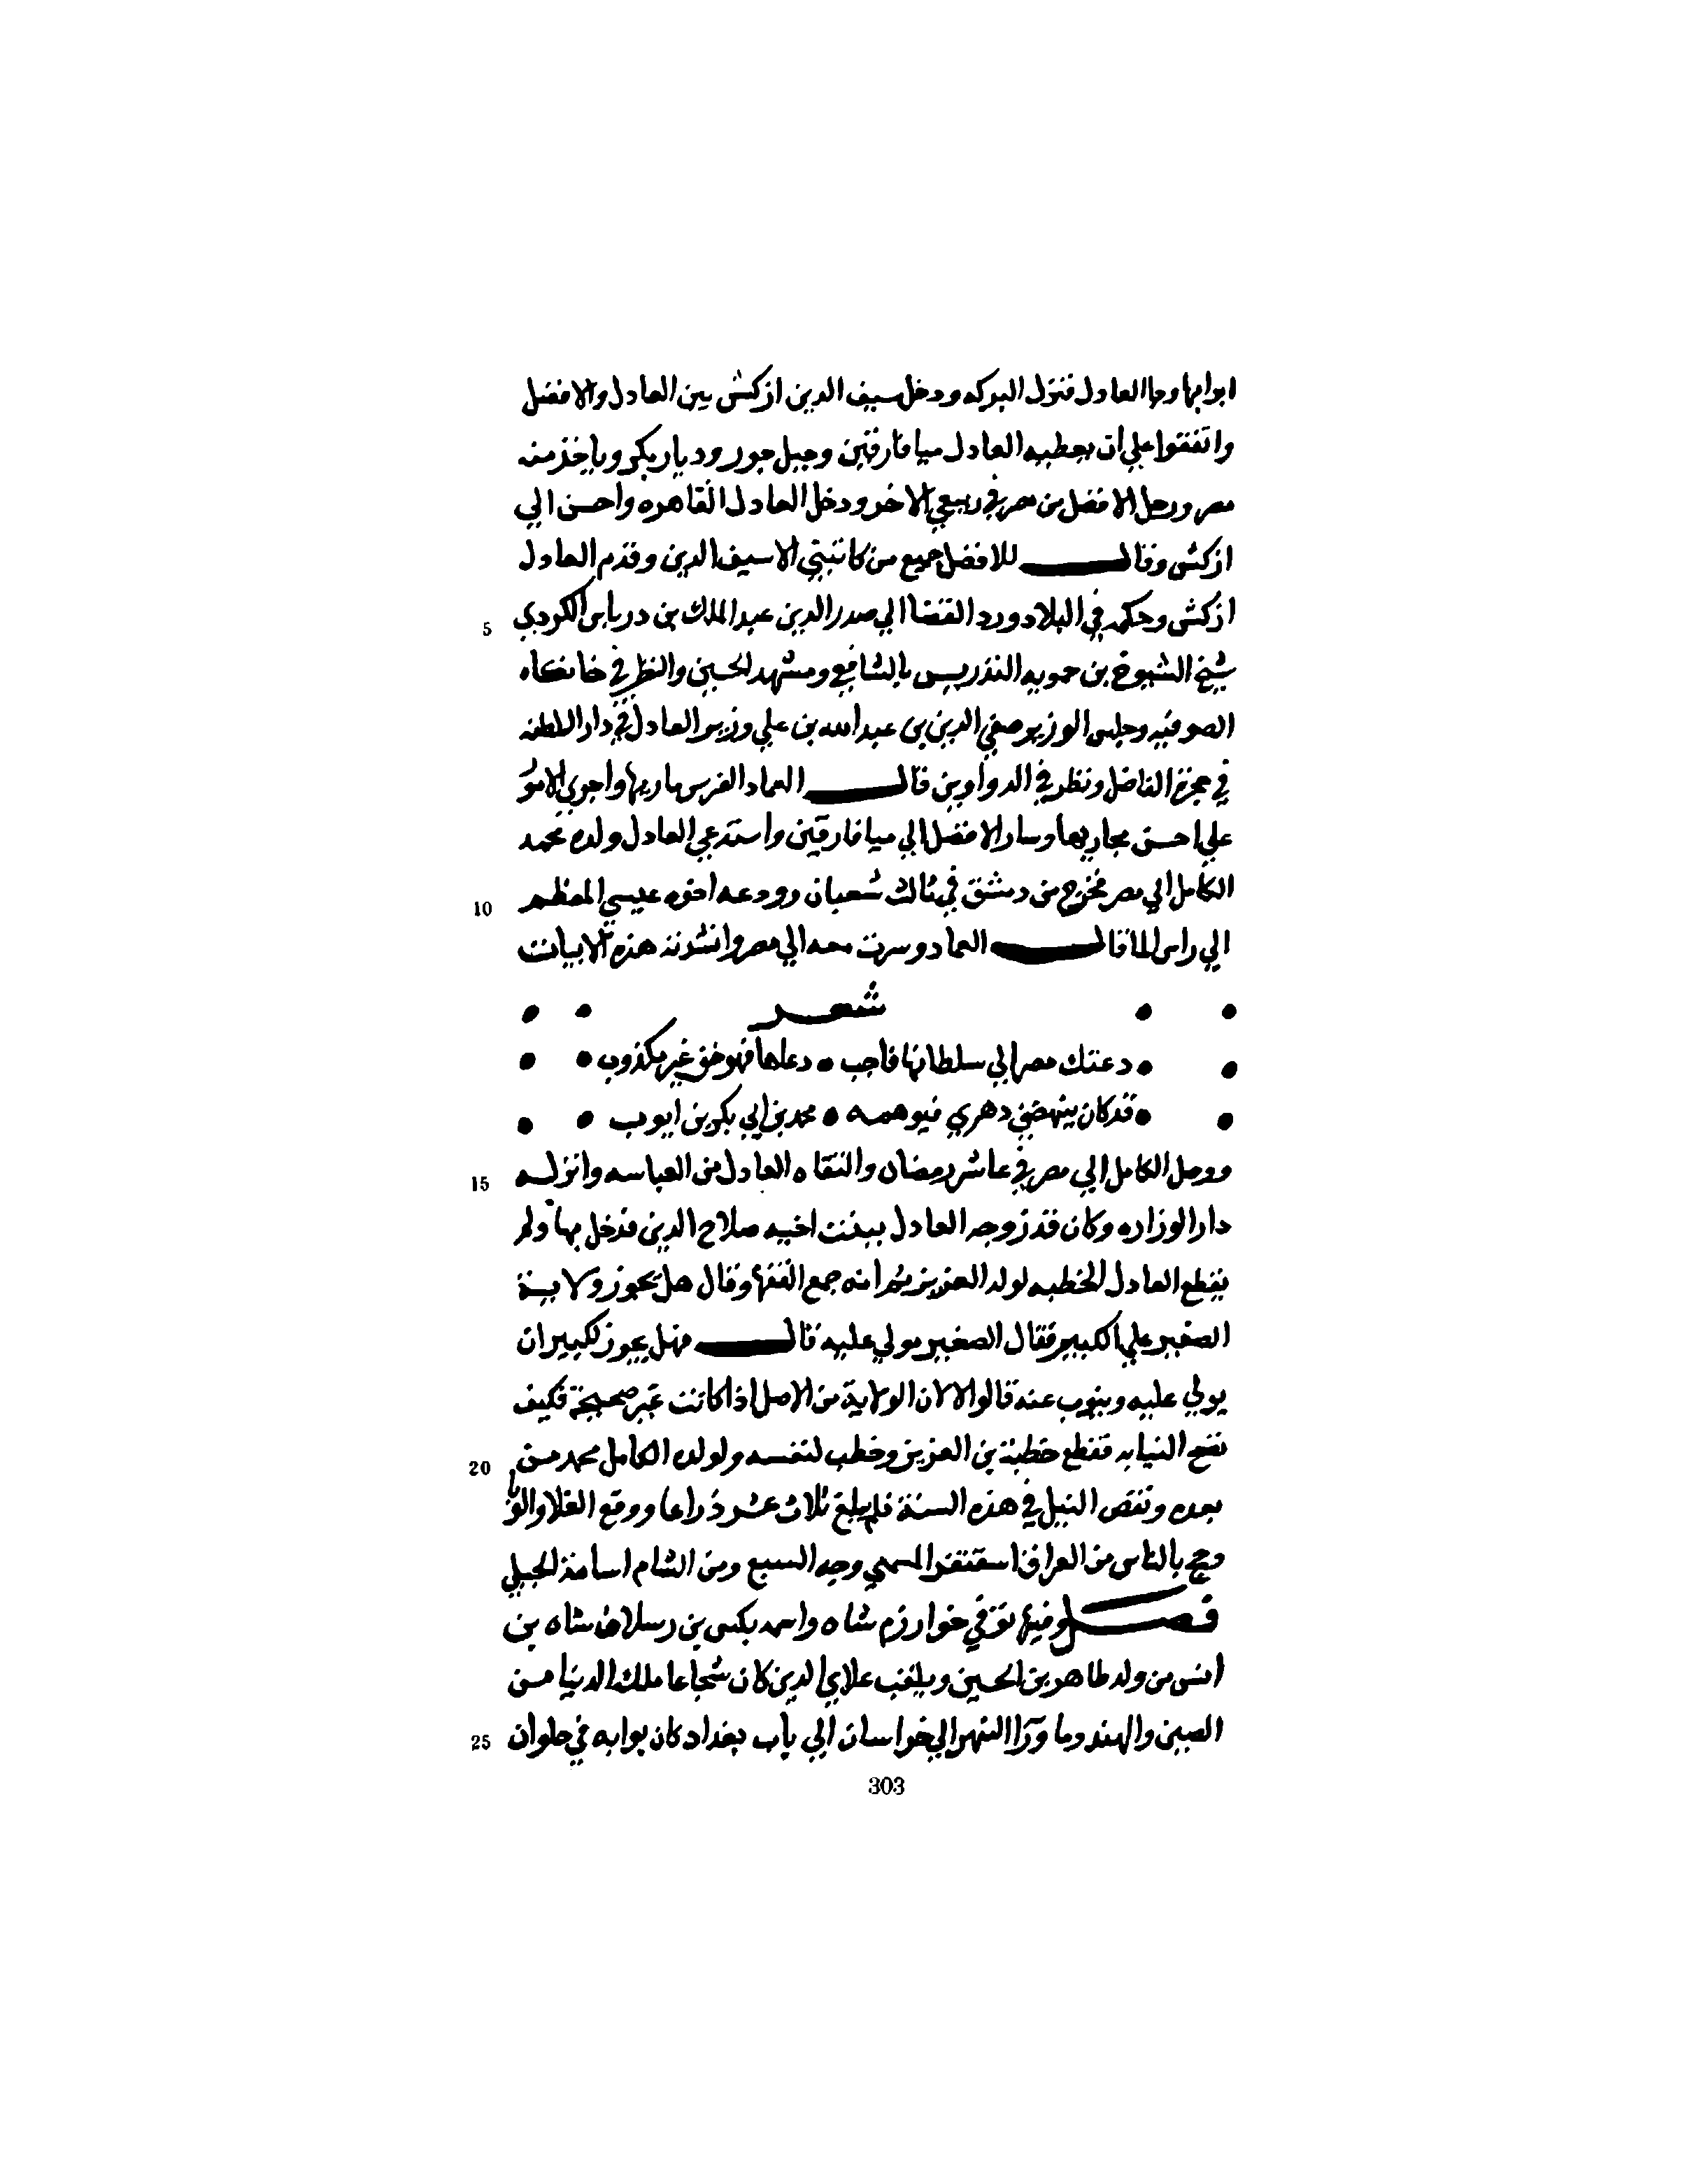 ابوابها وجا العادل فنزل البركه ودخل سيف الدين ازكش بين العادل والافضل
واتفقوا علي ان يعطيه العادل ميافارقين وجبل جور وديار بكر وياخذ منه
مصر ورحل الافضل من مصر في ربيع الاخر ودخل العادل القاهره واحسن الي
ازكش وقال للافضل جميع من كاتبني الا سيف الدين وقدم العادل
5 ازكش وحكمه في البلاد ورد القضا الي صدر الدين عبد الملك بن درباس الكردي
شيخ الشيوخ بن حمويه التدريس بالشافعي ومشهد الحسين والنظر في خانكاه
الصوفيه وجلس الوزير صفي الدين بن عبد الله بن علي وزير العادل في دار السلطنه
في حجرة الفاضل ونظر في الدواوين قال العماد واجري الامور
علي احسن مجاريها وسار الافضل الي ميافارقين واستدعي العادل ولده محمد
10 الكامل الي مصر فخرج من دمشق في ثالث شعبان وودعه اخوه عيسي المعظم
الي راس الما قال العماد وسرت معه الي مصر وانشدته هذه الابيات
شعر
دعتك مصر الي سلطانها فاجب • دعاها فهو حق غير مكذوب
قد كان ينهضني دهري • محمد بن ابي بكر بن ايوب
15 ووصل الكامل الي مصر في عاشر رمضان والتقاه العادل من العباسه وانزله
دار الوزاره وكان قد زوجه العادل ببنت اخيه صلاح الدين فدخل بها ولم
يقطع العادل الخطبه لولد العزيز ثم انه جمع الفقها وقال هل يجوز ولاية
الصغير علي الكبير فقال الصغير مولي عليه قال فهل يجوز لكبير ان
يولي عليه وينوب عنه قالوا لا لان الولاية من الاصل اذا كانت غير صحيحة فكيف
20 تصح النيابه فقطع خطبة بن العزيز وخطب لنفسه ولولده الكامل محمد من
بعده ونقص النيل في هذه السنة فلم يبلغ ثلاث عشر ذراعا ووقع الغلا والوبا
وحج بالناس من العراق المسمي وجه السبع ومن الشام اسامة الجبلي
فصل وفيها توفي خوارزم شاه بن رسلان شاه بن
اتسز من ولد طاهر بن الحسين ويلقب علاي الدين كان شجاعا ملك الدنيا من
25 الصين والهند وما ورآ النهر الي خراسان الي باب بغداد كان نوابه في حلوان
303